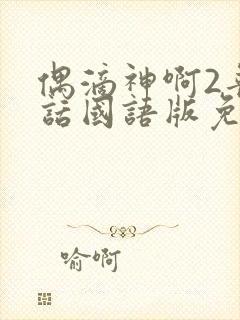 偶滴神啊2
話國語版免
喻啊